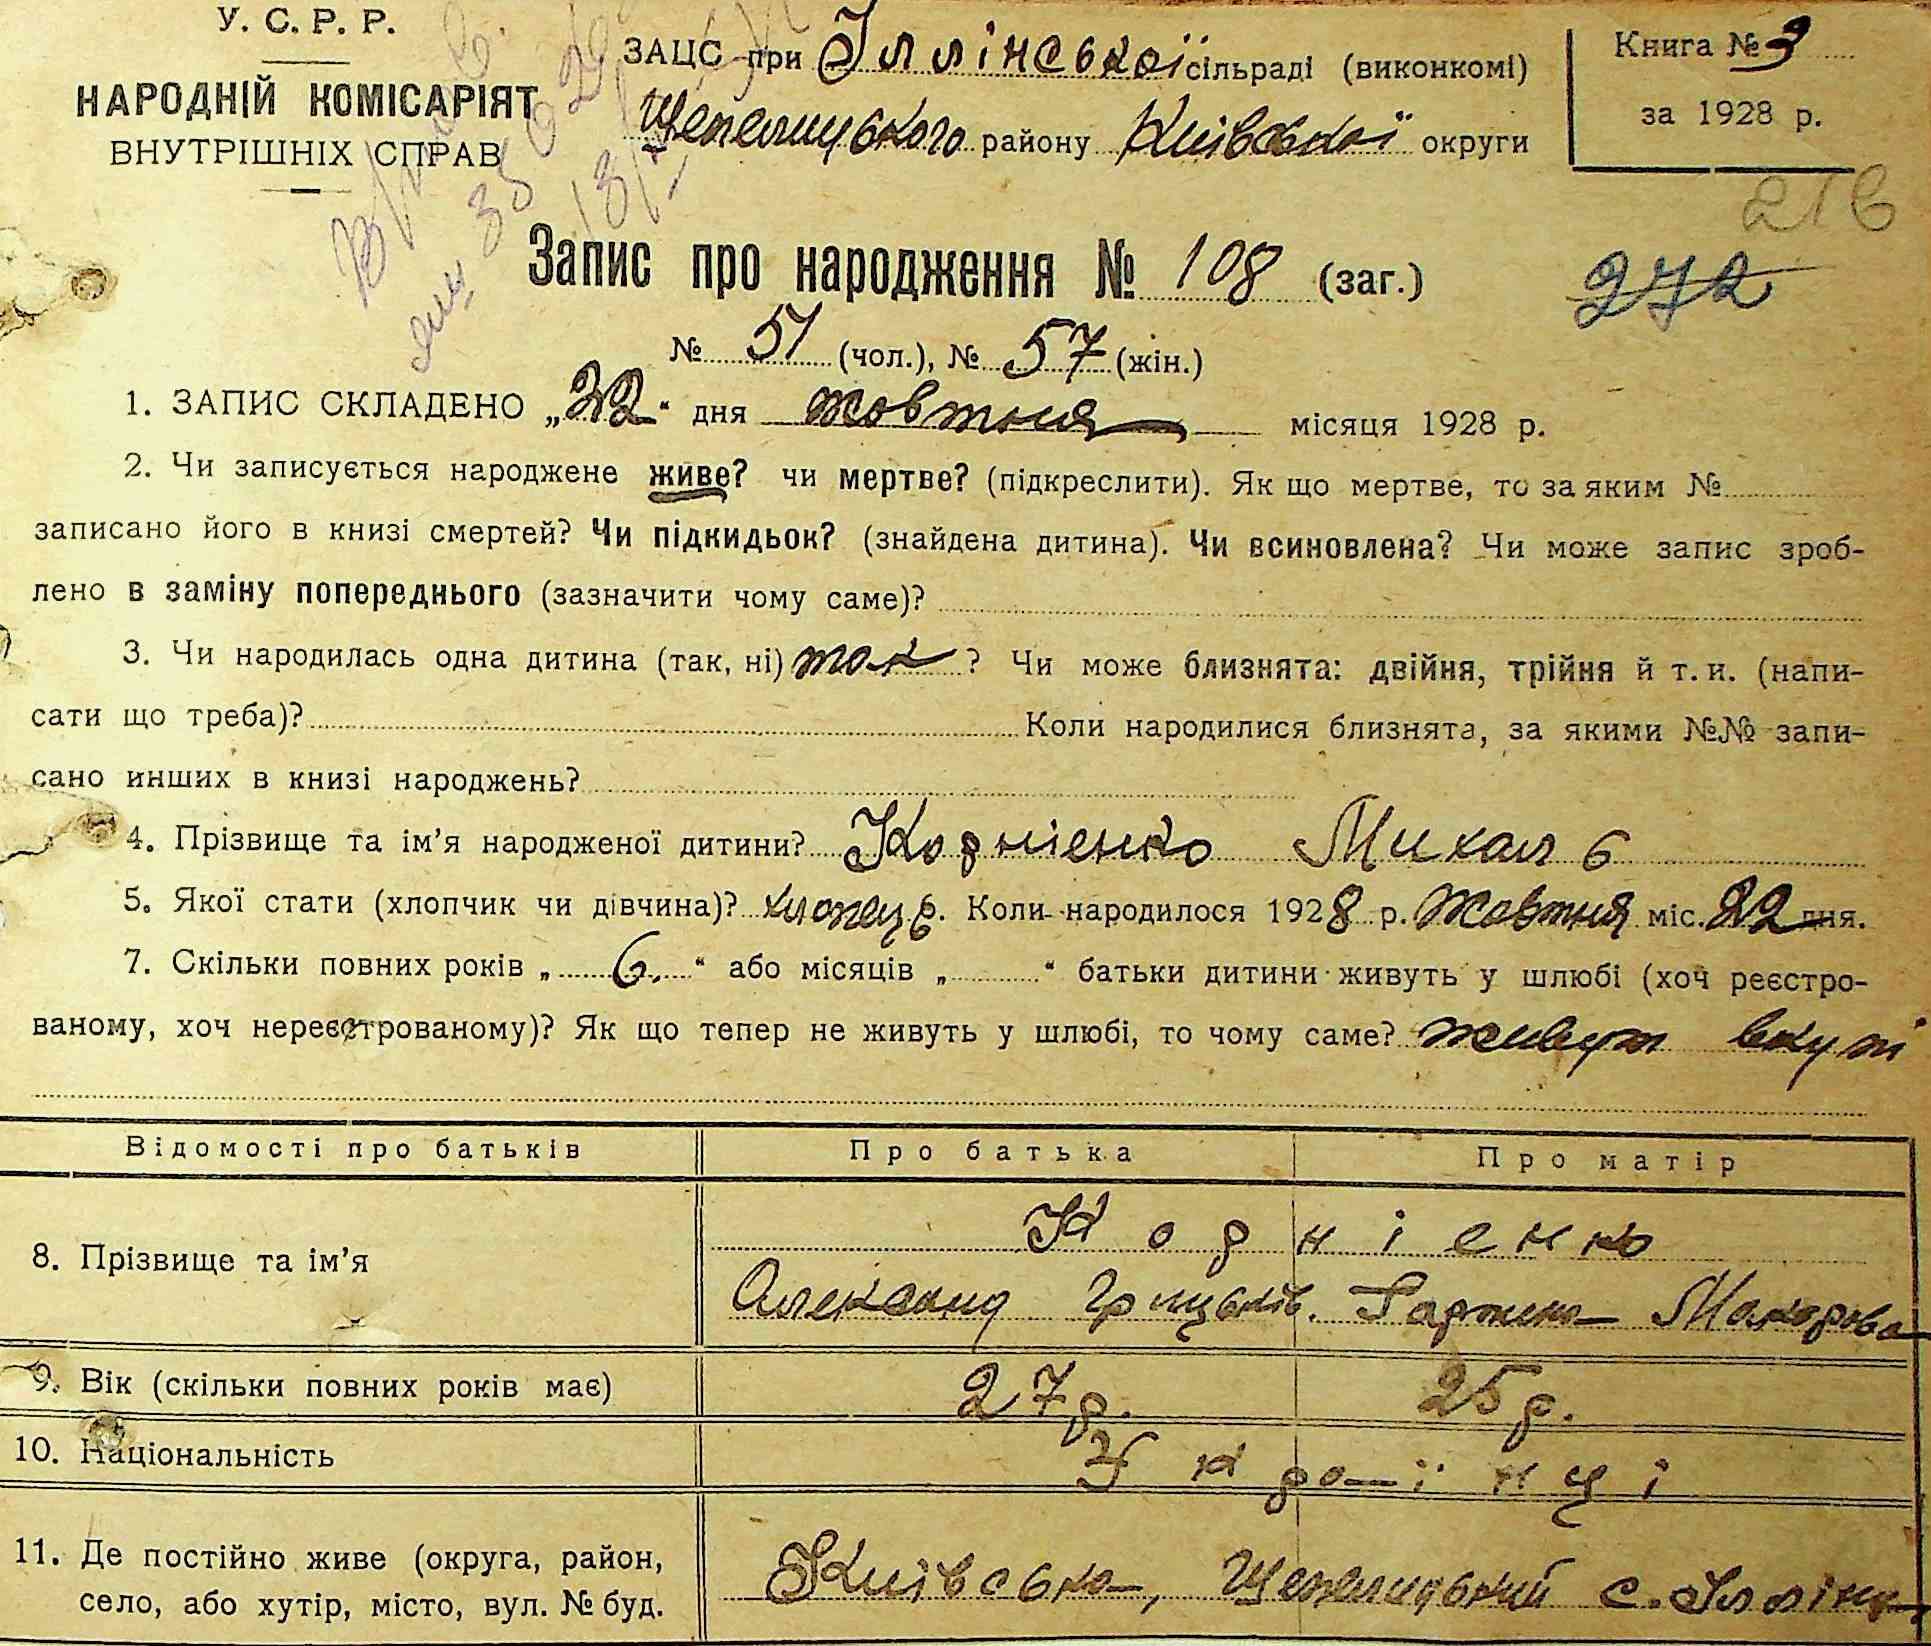 У. С. Р. Р.
НАРОДНІЙ КОМІСАРІЯТ
ВНУТРІШНІХ СПРАВ
ЗАЦС при Іллінської сільраді (виконкомі)
Шепелицького району Київської округи
Книга № 3
за 1928 р.
216
272
Запис про народження № 108 (заг.)
№ 51 (чол.), № 57 (жін.)
1. ЗАПИС СКЛАДЕНО „22“ дня жовтня місяця 1928 р.
2. Чи записується народжене живе? чи мертве? (підкреслити). Як що мертве, то за яким №
записано його в книзі смертей? Чи підкидьок? (знайдена дитина). Чи всиновлена? Чи може запис зроб-
лено в заміну попереднього (зазначити чому саме)?
3. Чи народилась одна дитина (так, ні) так ? Чи може близнята: двійня, трійня й т. и. (напи-
сати що треба)? Коли народилися близнята, за якими №№ запи-
сано инших в книзі народжень?
4. Прізвище та ім’я народженої дитини? Корнієнко Михаль
5. Якої стати (хлопчик чи дівчина)? хлопець 6. Коли народилося 1928 р. Жовтня міс. 22 дня.
7. Скільки повних років „ 6. “ або місяців „ “ батьки дитини живуть у шлюбі (хоч реєстро-
ваному, хоч нереєстрованому)? Як що тепер не живуть у шлюбі, то чому саме? живут вкупі
Відомості про батьків Про батька Про матір
8. Прізвище та ім’я Корнієнко
Олександ Грицьків. Гарпина Макарова
9. Вік (скільки повних років має) 27 р. 25 р.
10. Національність Українці
11. Де постійно живе (округа, район,
село, або хутір, місто, вул. № буд. Київська, Шепелицький с. Іллінц